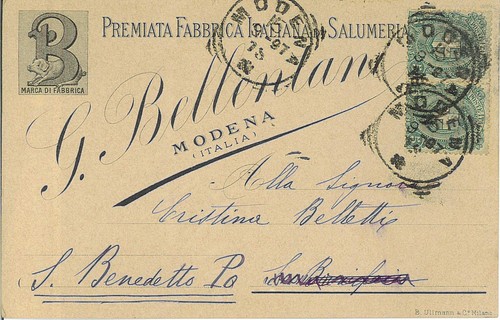 PREMIATA FABBRICA ITALIANA DI SALUMERIA
B
MARCA DI FABBRICA
MODENA
97
G. Bellentani
MODENA
(ITALIA)
MODENA
MODENA
97
Alla Signora
Cristina Belletti
S. Benedetto Po
B. Ullmann & C.º Milano